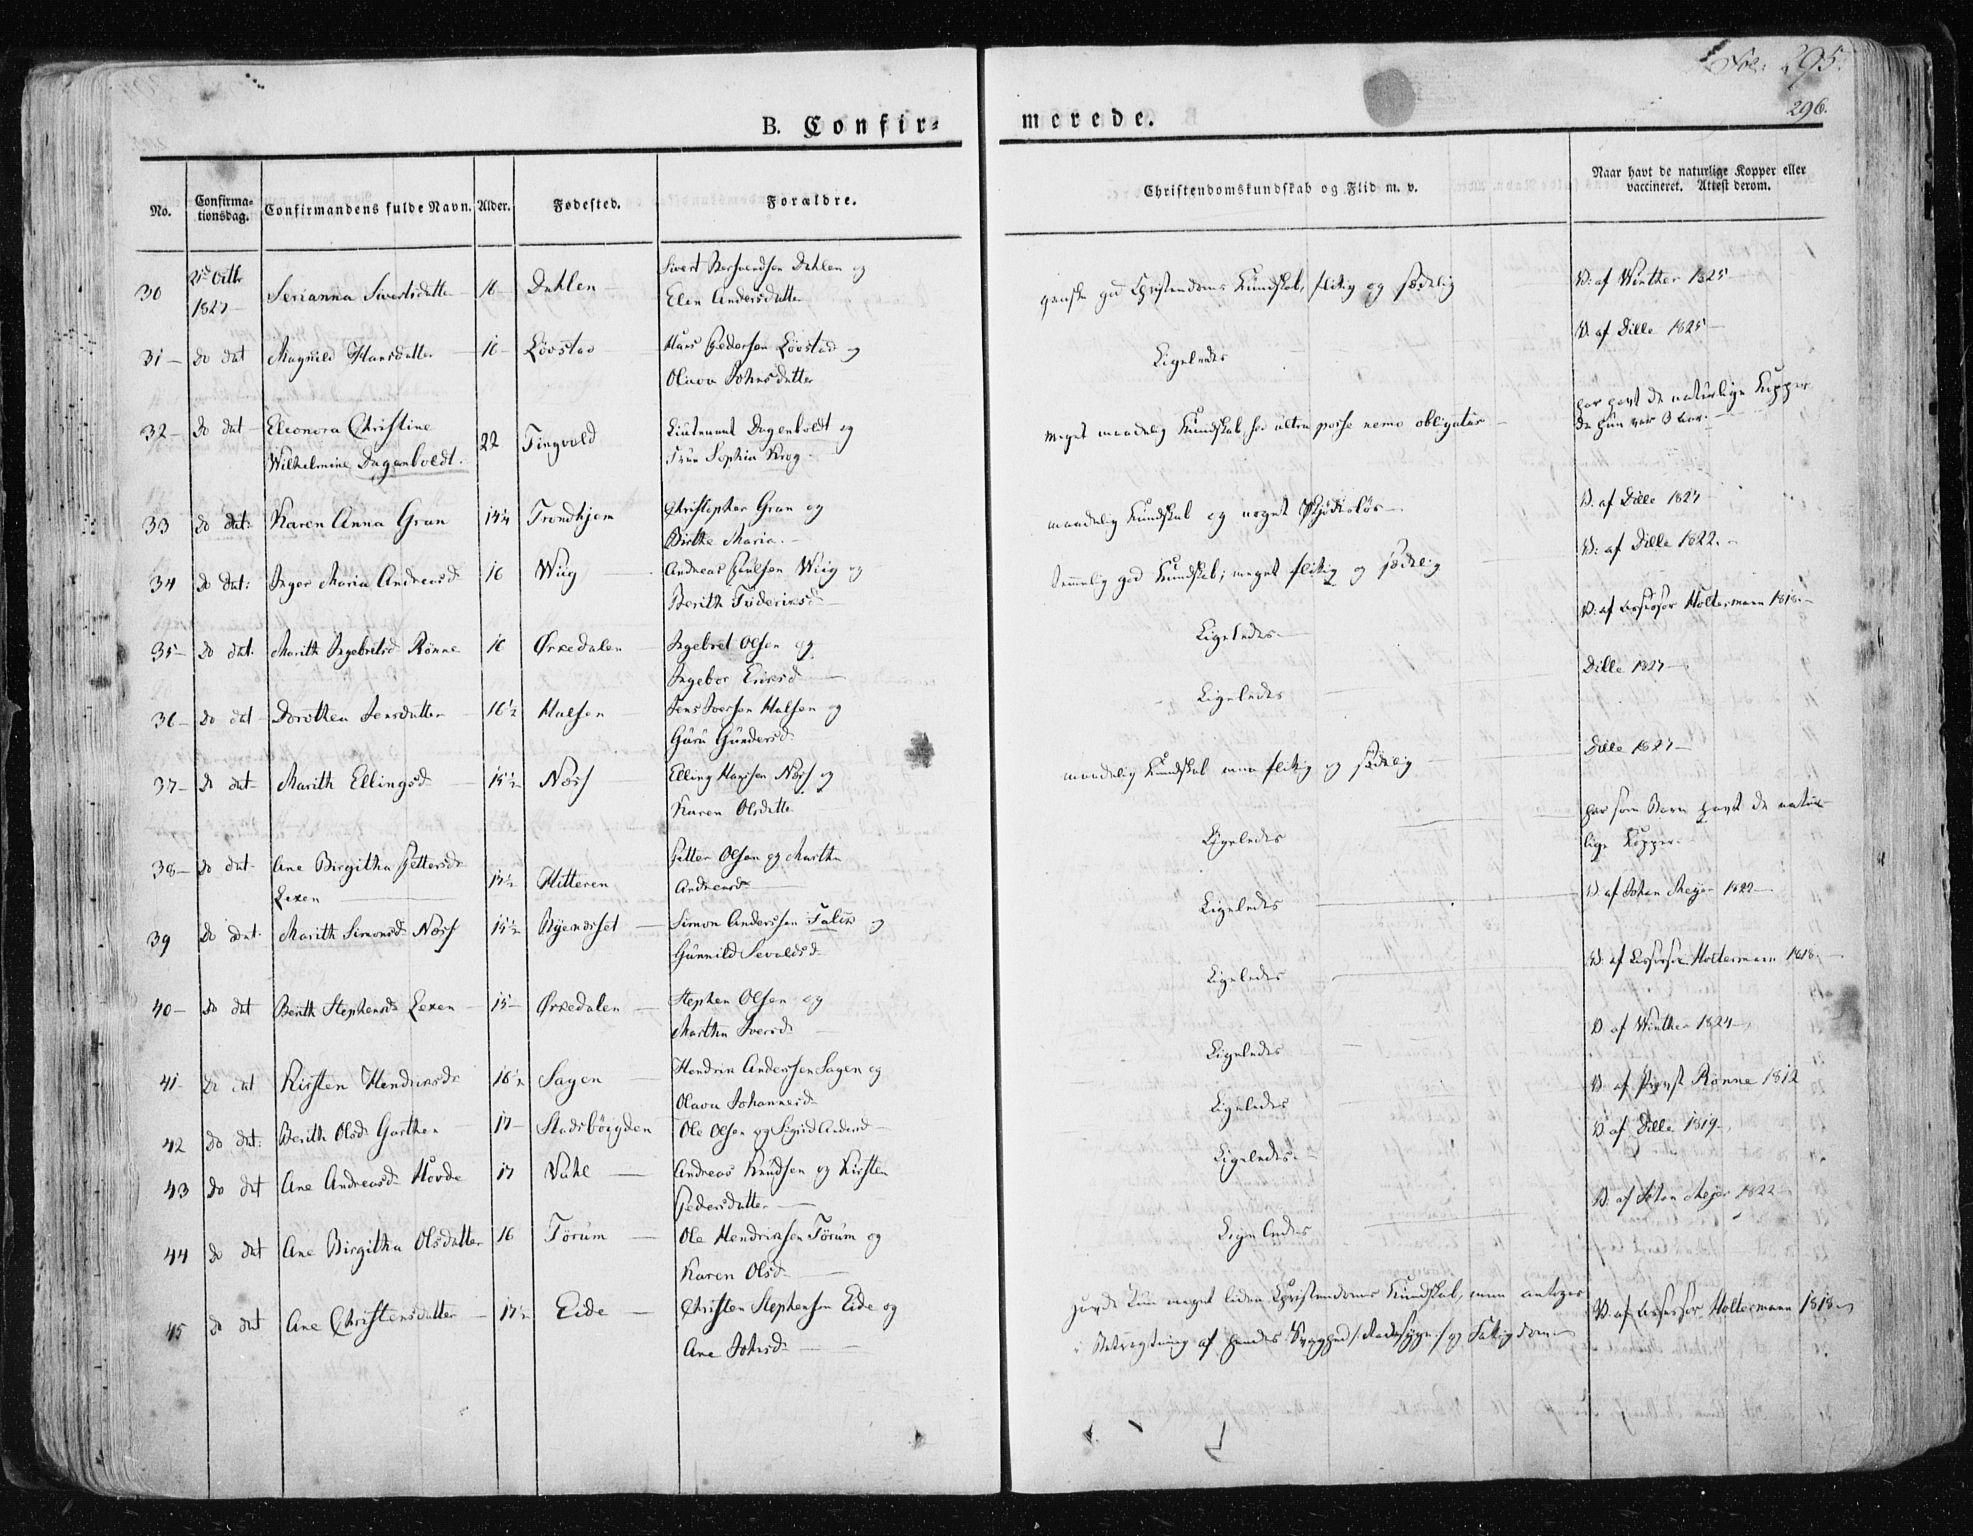 Fol: 295.
296.
B. Confir-
merede.
No.
Confirma-
tionsdag.
Confirmandens fulde Navn.
Alder.
Fødested.
Forældre.
Christendomskundskab og Flid m. v.
Naar havt de naturlige Kopper eller
vaccineret. Attest derom.
30
1827
Serianna Sivertsdatter
16
Dahlen
Sivert Dahlen og
Elen Andersdatter
ganske god Christendoms Kundskab, flitig og sædelig
V: af Winther 1825
31 do dat Magnild Hansdatter 16 Lövstad
Hans Pedersen Lövstad og
Olava Johnsdatter
Ligeledes
V. af Dille 1825
32 do dat Eleonora Christine
Wilhelmine Dagenboldt.
22 Tingvold
Lieutenant Dagenboldt og
Frue Sophia Krog
meget maadelig Kundskab, sed ultra posse nemo obligatur
har havt de naturlige Kopper
da hun var 3 aar.
33 do dat: Karen Anna Gran 14¼ Trondhjem
Christopher Gran og
Birthe Maria.
maadelig Kundskab og noget Skjödeslös
V. af Dille 1827
34 do dat: Inger Maria Andreasd 16 Wiig
Andreas Paulsen Wiig og
Berith Frideriksd
temmelig god Kundskab; meget flitig og sædelig
V: af Dille 1822.
35 do dat. Marith Ingebritsd Rönne 16 Örkedalen
Ingebret Olsen og
Ingebor Eriksd
Ligeledes
V: af Assessor Holtermann 1818.
36 do dat Dorothea Jensdatter 16½ Halsen
Jens Iversen Halsen og
Guru Gundersd
Ligeledes
Dille 1827
37 do dat Marith Ellingsd 15½ Næss
Elling Hansen Næss og
Karen Olsdatter
maadelig Kundskab men flitig og sædelig
Dille 1827
38 do dat Ane Birgitha Pettersd
Lexen
15½ Hitteren
Petter Olsen og Martha
Andreasd
Ligeledes
har som Barn havt de natur-
lige Kopper
39 do dat. Marith Simonsd Næss 15½
Simon Andersen og
Gunnild Sevaldsd
Ligeledes
V. af Johan Meyer 1822
40 do dat Berith Stephensd Lexen 15 Örkedalen
Stephen Olsen og
Martha Iversd
Ligeledes
V: af Assessor Holtermann 1818.
41 do dat Kirsten Hendriksd 16½ Sagen
Hendrik Andersen Sagen og
Olava Johannesd
Ligeledes
V af Winther 1824
42 do dat: Berith Olsd Garthen 17 Stadsböigden
Ole Olsen og Sigrid Andersd
Ligeledes
V: af Provst Rönne 1812
43 do dat Ane Andreasd Hovde 17
Andreas Knudsen og Kirsten
Pedersdatter
Ligeledes
V af Dille 1819.
44 do dat Ane Birgitha Olsdatter 16 Törum
Ole Hendriksen Törum og
Karen Olsd
Ligeledes
V: af Johan Mejer 1822
45 do dat Ane Christensdatter 17½ Eide
Christen Stephensen Eide og
Ane Johsd
havde kun meget liden Christendoms Kundskab, men antoges
i Betragtning af hendes Svaghed /: Radesyge :/ og Fattigdom
V: af Assessor Holtermann 1818